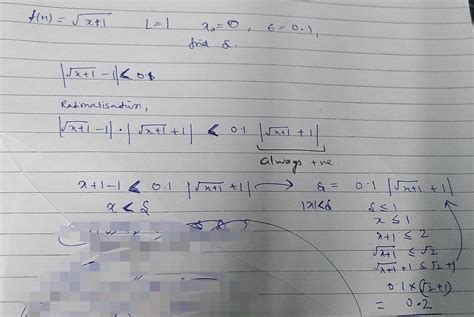 f(x) = √x+1    L=1    x₀=0,    ε=0.1,
find δ.
|√x+1 - 1| < 0.1
Rationalisation,
|√x+1 - 1| · |√x+1 + 1| < 0.1 |√x+1 + 1|
always +ve.
x+1-1 < 0.1 |√x+1 + 1| → δ = 0.1 |√x+1 + 1|
x < δ    |x|<δ    δ ≤ 1
x ≤ 1
x+1 ≤ 2
√x+1 ≤ √2
√x+1 + 1 ≤ √2+1
0.1×(√2+1)
= 0.2